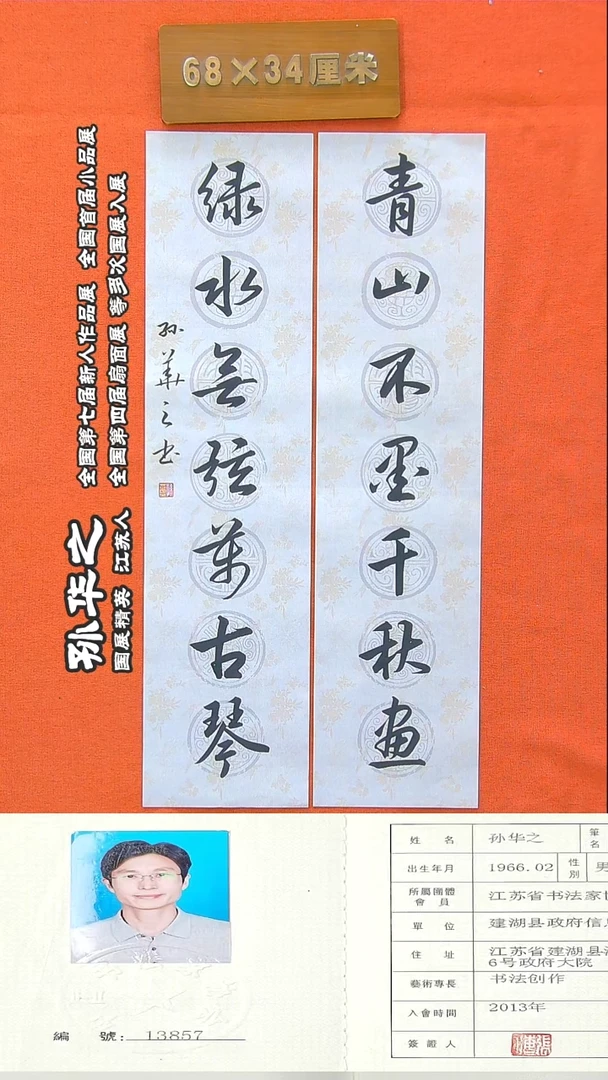 68×34厘米
青山不墨千秋画
绿水无弦万古琴
孙華之书
孙华之
国展精英 江苏人
全国第七届新人作品展 全国首届小品展
全国第四届扇面展 等多次国展入展
編 號: 13857
姓 名 孙华之 筆名
出生年月 1966.02 性別 男
所屬團體會員 江苏省书法家协
單 位 建湖县政府信息
住 址 江苏省建湖县
6号政府大院
藝術專長 书法创作
入會時間 2013年
簽證人